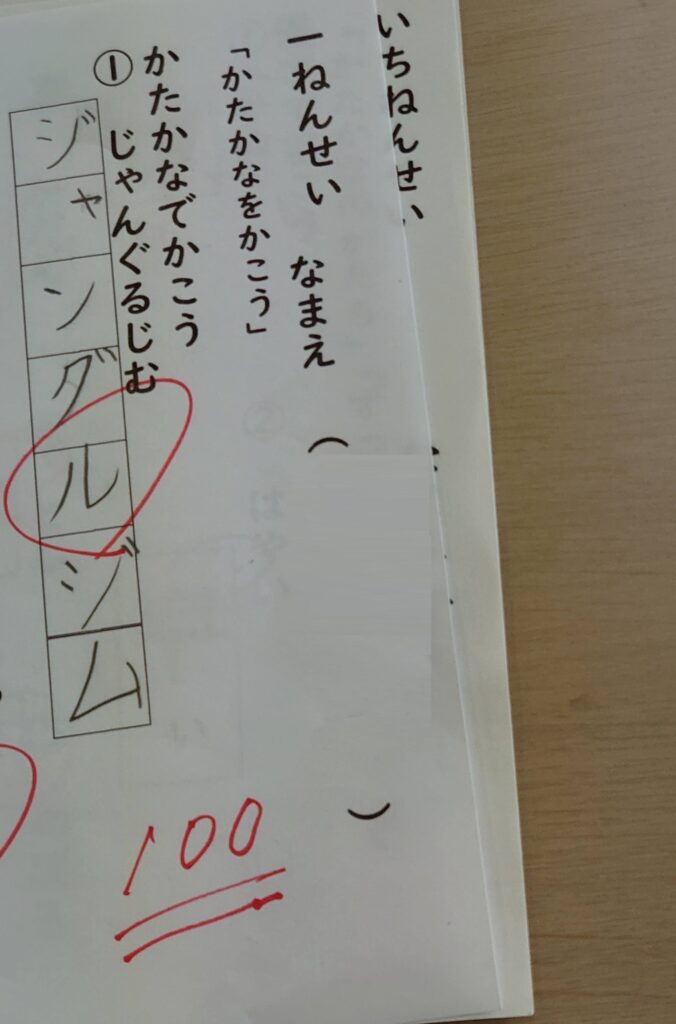 いちねんせい
一ねんせい なまえ ( )
「かたかなをかこう」
かたかなでかこう
① じゃんぐるじむ
ジャングルジム
100